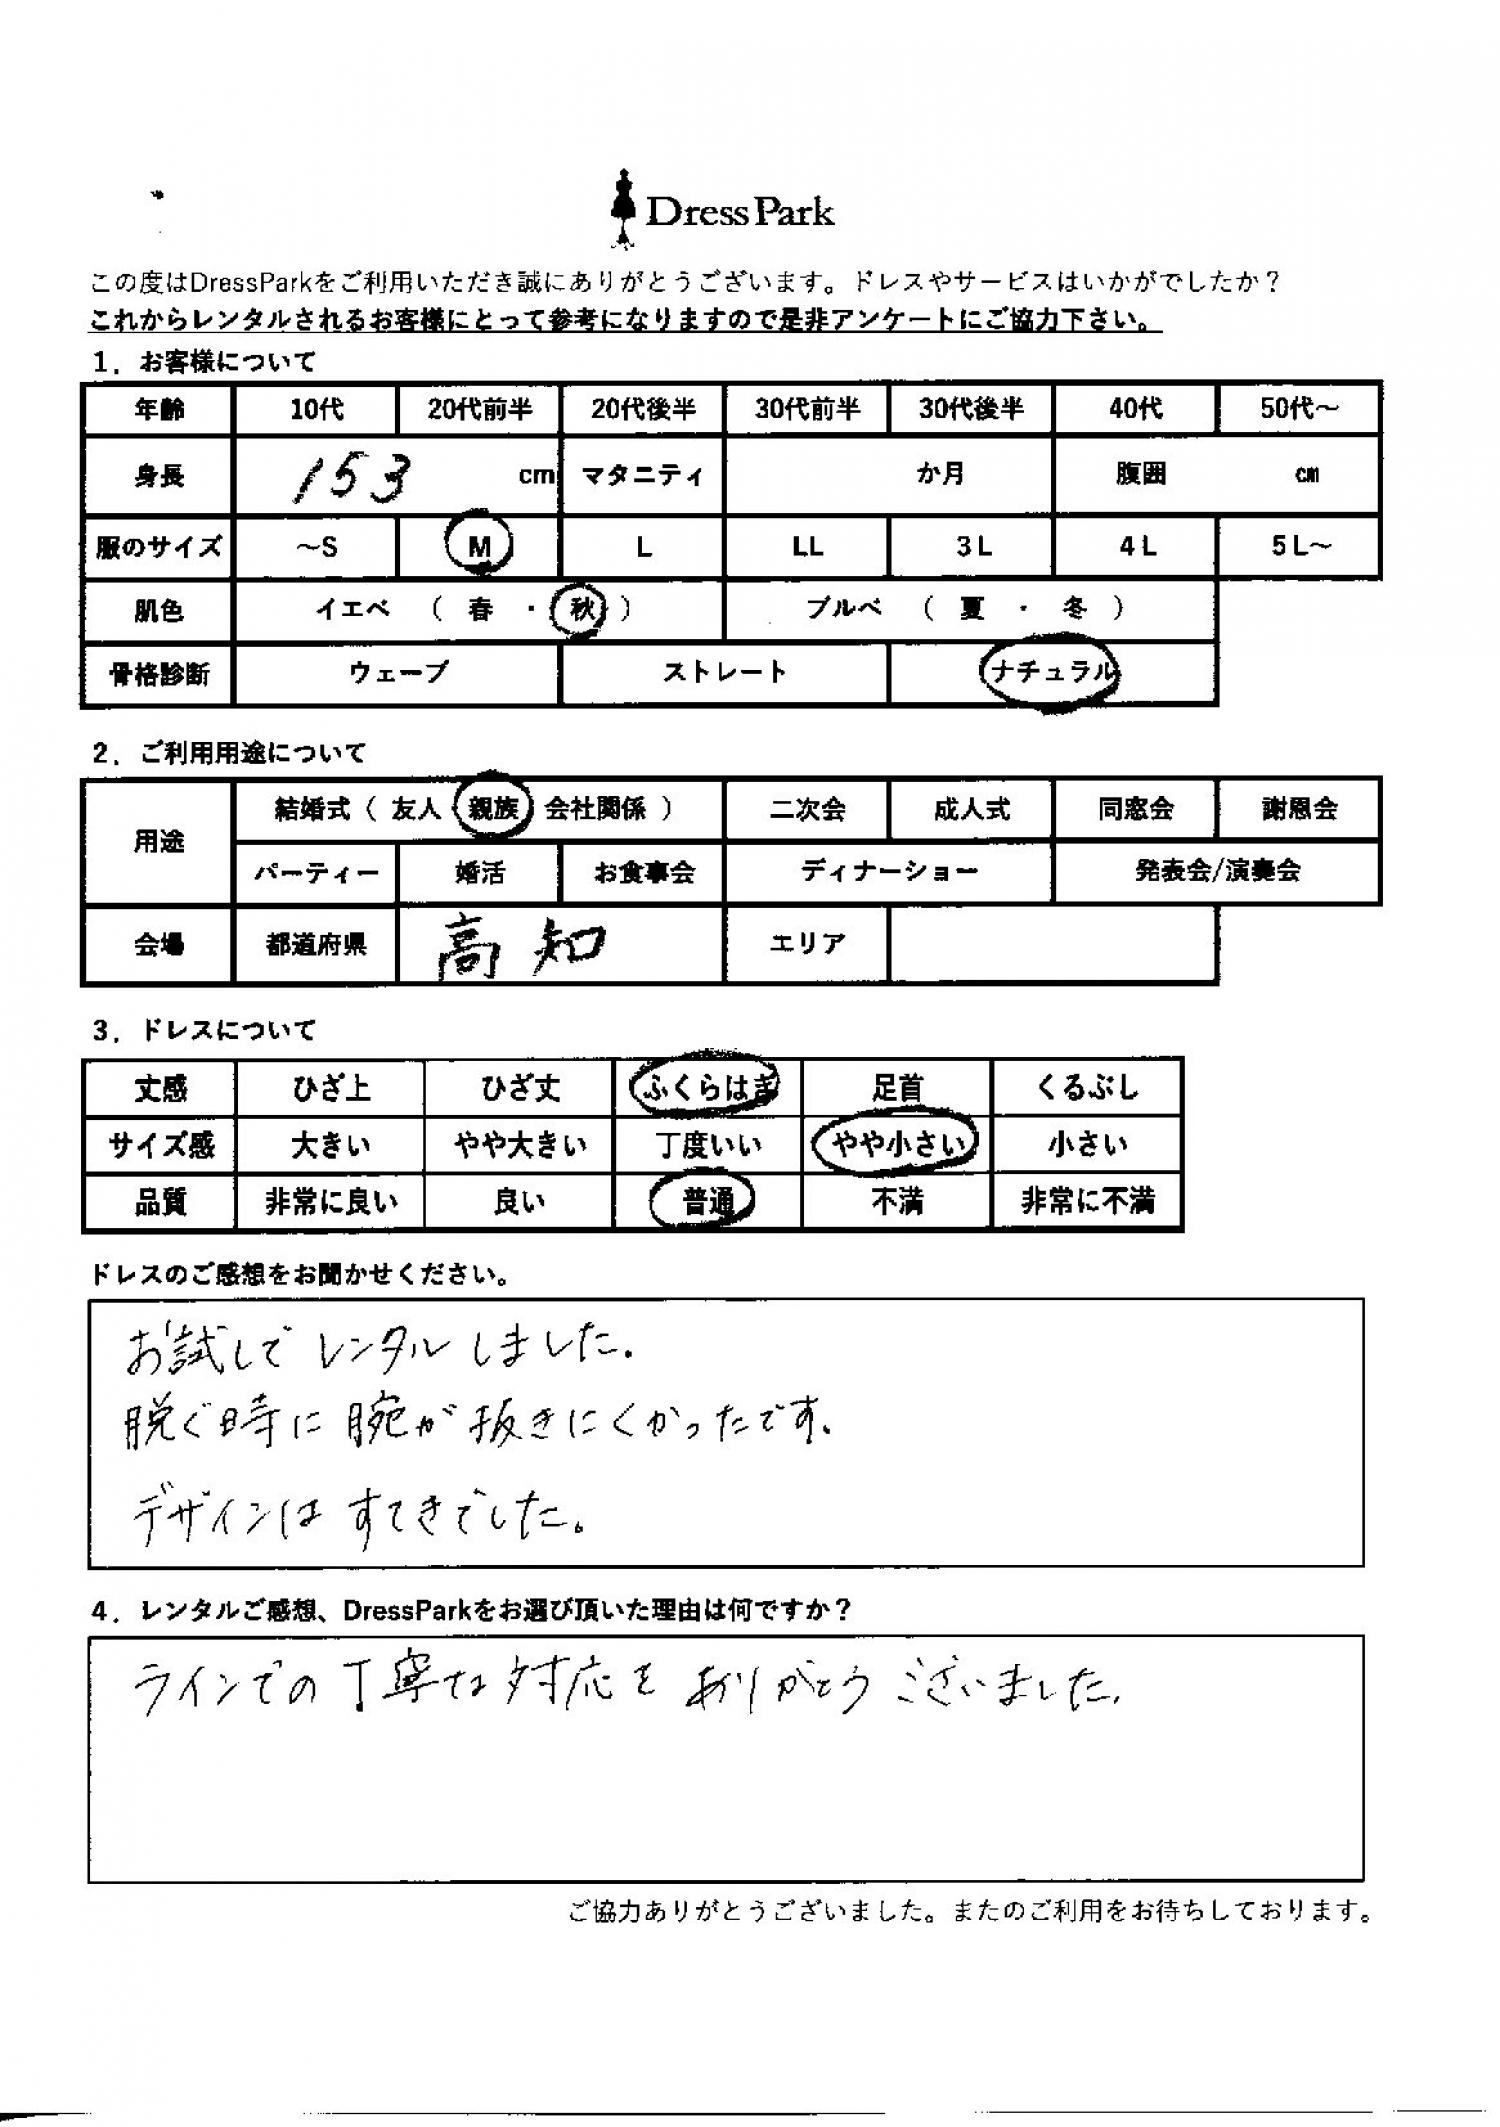 Dress Park
この度はDressParkをご利用いただき誠にありがとうございます。ドレスやサービスはいかがでしたか？
これからレンタルされるお客様にとって参考になりますので是非アンケートにご協力下さい。
1．お客様について
年齢 10代 20代前半 20代後半 30代前半 30代後半 40代 50代～
身長 153 cm マタニティ か月 腹囲 cm
服のサイズ ～S M L LL 3L 4L 5L～
肌色 イエベ （ 春 ・ 秋 ） ブルベ （ 夏 ・ 冬 ）
骨格診断 ウェーブ ストレート ナチュラル
2．ご利用用途について
用途 結婚式（ 友人 親族 会社関係 ） 二次会 成人式 同窓会 謝恩会
パーティー 婚活 お食事会 ディナーショー 発表会/演奏会
会場 都道府県 高知 エリア
3．ドレスについて
丈感 ひざ上 ひざ丈 ふくらはぎ 足首 くるぶし
サイズ感 大きい やや大きい 丁度いい やや小さい 小さい
品質 非常に良い 良い 普通 不満 非常に不満
ドレスのご感想をお聞かせください。
お試しでレンタルしました。
脱ぐ時に腕が抜きにくかったです。
デザインはすてきでした。
4．レンタルご感想、DressParkをお選び頂いた理由は何ですか？
ラインでの丁寧な対応をありがとうございました。
ご協力ありがとうございました。またのご利用をお待ちしております。